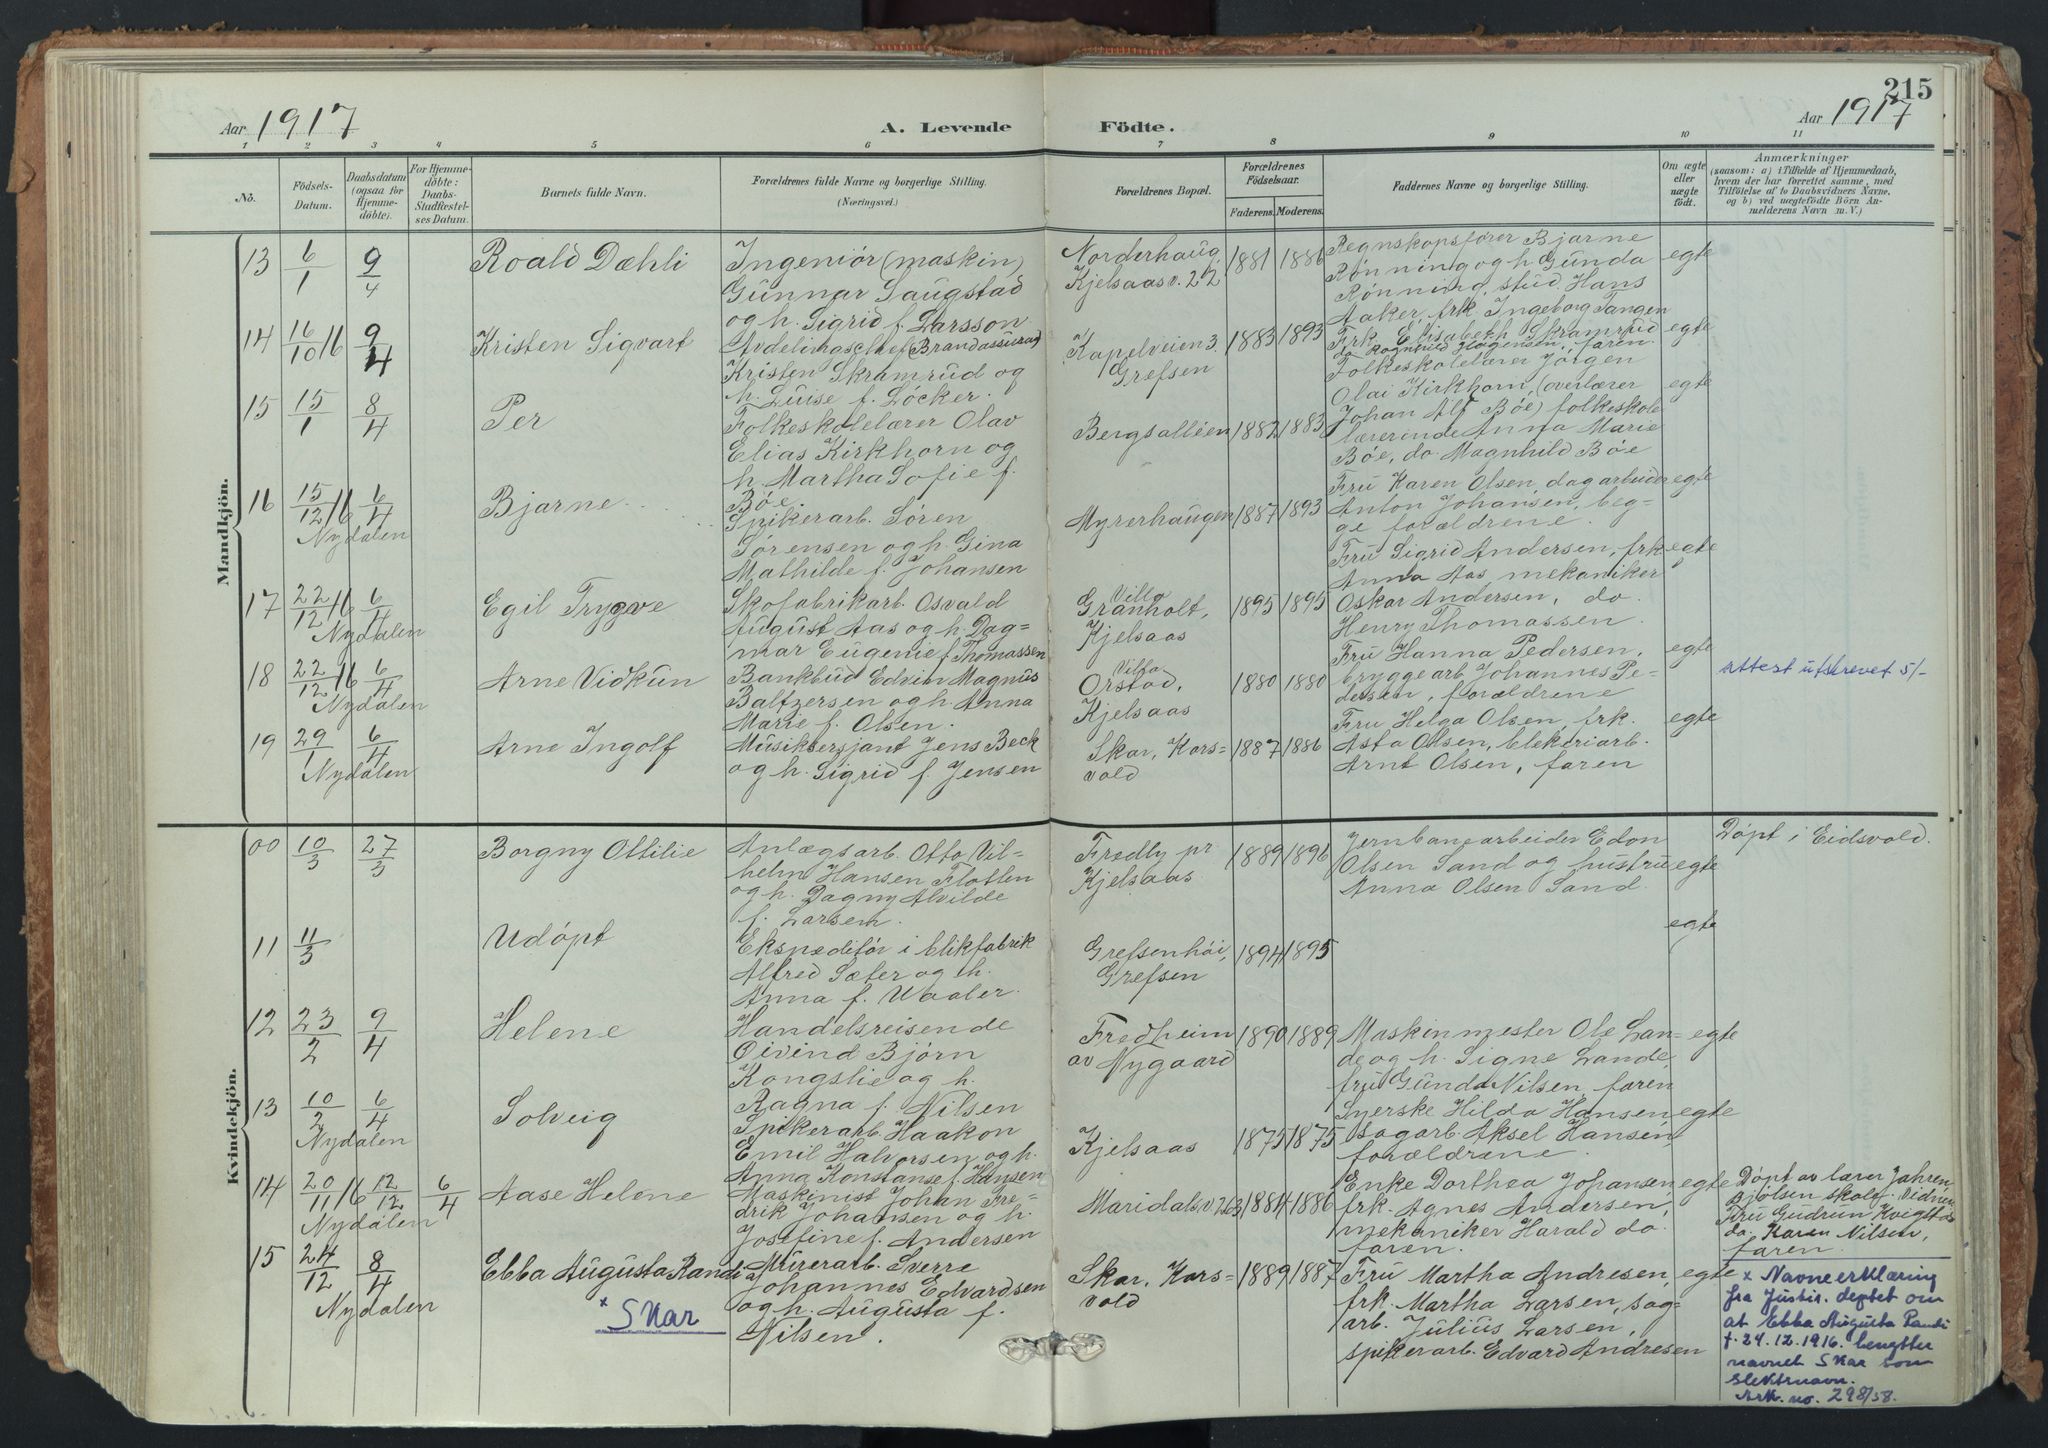 215
Aar 1917
A. Levende
Födte.
Aar 1917
1 2 3 4 5 6 7 8 9 10 11
No.
Födsels-
Datum.
Daabsdatum
(ogsaa for
Hjemme-
döbte).
For Hjemme-
döbte:
Daabs-
Stadfæstel-
ses Datum.
Barnets fulde Navn.
Forældrenes fulde Navne og borgerlige Stilling.
(Næringsvei.)
Forældrenes Bopæl.
Forældrenes
Födselsaar.
Faderens. Moderens.
Faddernes Navne og borgerlige Stilling.
Om ægte
eller
uægte
födt.
Anmærkninger
(saasom: a) i Tilfælde af Hjemmedaab,
hvem der har forrettet samme, med
Tilföielse af to Daabsvidners Navne,
og b) ved uægtefödte Börn An-
melderens Navn m. V.)
Mandkjön.
13 6/1 9/4 Roald Dæhli
Ingeniør (maskin)
Gunnar Saugstad
og h. Sigrid f. Larsson
Norderhaug
Kjelsaas v. 22
1881 1886
Regnskapsfører Bjarne
Rønning og h. Gunda
Rønning, stud. Hans
Aaker, frk. Ingeborg Tangen
egte
14 16/10 16 9/4 Kristen Sigvart
Avdelingschef (Brandassurad)
Kristen Skramrud og
h. Luise f. Løcker.
Kapelveien 3.
Grefsen
1883 1893
Frk. Elisabeth Skramrud
do Ragnhild Haagensen, faren.
egte
15 15/1 8/4 Per
Folkeskolelærer Olav
Elias Kirkhorn og
h. Martha Sofie f.
Bøe.
Bergsalléen
1882 1883
Folkeskolelærer Jörgen
Olai Kirkhorn, (overlærer
Johan Alf Bøe) folkeskole
lærerinde Anna Marie
Bøe, do. Magnhild Bøe
egte
16 15/12 16 6/4 Bjarne
Nydalen
Spikerarb. Søren
Sørensen og h. Gina
Mathilde f. Johansen
Myrerhaugen
1887 1893
Fru Karen Olsen, dagarbeider
Anton Johansen, beg-
ge forældrene.
egte
17 22/12 16 6/4 Egil Trygve
Nydalen
Skofabrikarb. Osvald
August Aas og h. Dag-
mar Eugenie f. Thomassen
Villa
Granholt,
Kjelsaas
1895 1895
Fru Sigrid Andersen, frk
Anna Aas, mekaniker
Oskar Andersen, do.
Henry Thomassen.
egte
18 22/12 16 6/4 Arne Vidkun
Nydalen
Bankbud Edvin Magnus
Baltzersen og h. Anna
Marie f. Olsen.
Villa
Orstad,
Kjelsaas
1880 1880
Fru Hanna Pedersen,
bryggearb. Johannes Pe-
dersen, forældrene
egte
Attest utskrevet 5/-
19 29/1 6/4 Arne Ingolf
Nydalen
Musiksersjant Jens Beck
og h. Sigrid f. Jensen
Skar, Kors-
vold
1887 1886
Fru Helga Olsen, frk.
Asta Olsen, blekeriarb.
Arnt Olsen, faren
egte
Kvindekjön.
00 10/3 27/3 Borgny Ottilie
Anlægsarb. Otto Vil-
helm Hansen Flatlen
og h. Dagny Alvilde
f. Larsen.
Fredly pr.
Kjelsaas
1889 1896
Jernbanearbeider Edon
Olsen Sand og hustru
Anna Olsen Sand.
egte
Døpt i Eidsvold.
11 11/3 Udøpt
Ekspeditør i blikfabrik
Alfred Sæter og h.
Anna f. Waaler.
Grefsenhöi,
Grefsen
1894 1895
egte
12 23/2 9/4 Helene
Handelsreisende
Øivind Bjørn
Kongslie og h.
Ragna f. Nilsen
Fredheim
av Nygaard
1890 1889
Maskinmester Ole Lan-
de og h. Signe Lande,
fru Gunda Nilsen, faren
egte
13 10/2 6/4 Solveig
Nydalen
Spikerarb. Haakon
Emil Halvorsen og h.
Anna Konstanse f. Hansen
Kjelsaas
1875 1875
Syerske Hilda Hansen
sagarb. Aksel Hansen
forældrene.
egte
14 20/11 16 12/12 6/4 Aase Helene
Nydalen
Maskinist Johan Fre-
drik Johansen og h.
Josefine f. Andersen
Maridalsv. 263
1884 1886
Enke Dorthea Johansen
frk. Agnes Andersen,
mekaniker Harald do.
faren.
egte
Døpt av lærer Jahren,
Bjølsen skole. Vidner
Fru Gudrun Kvigstad
do. Karen Nilsen,
faren.
15 24/12 8/4 Ebba Augusta Randi
Nydalen
x Skar
Murerarb. Sverre
Johannes Edvardsen
og h. Augusta f.
Nilsen.
Skar, Kors-
vold
1889 1887
Fru Martha Andresen,
frk. Martha Larsen, sag-
arb. Julius Larsen,
spikerarb. Edvard Andresen
egte
x Navneerklæring
fra Justis. deptet om
at Ebba Augusta Randi
f. 24.12.1916. benytter
navnet Skar som
slektsnavn.
Ark. no. 298/58.